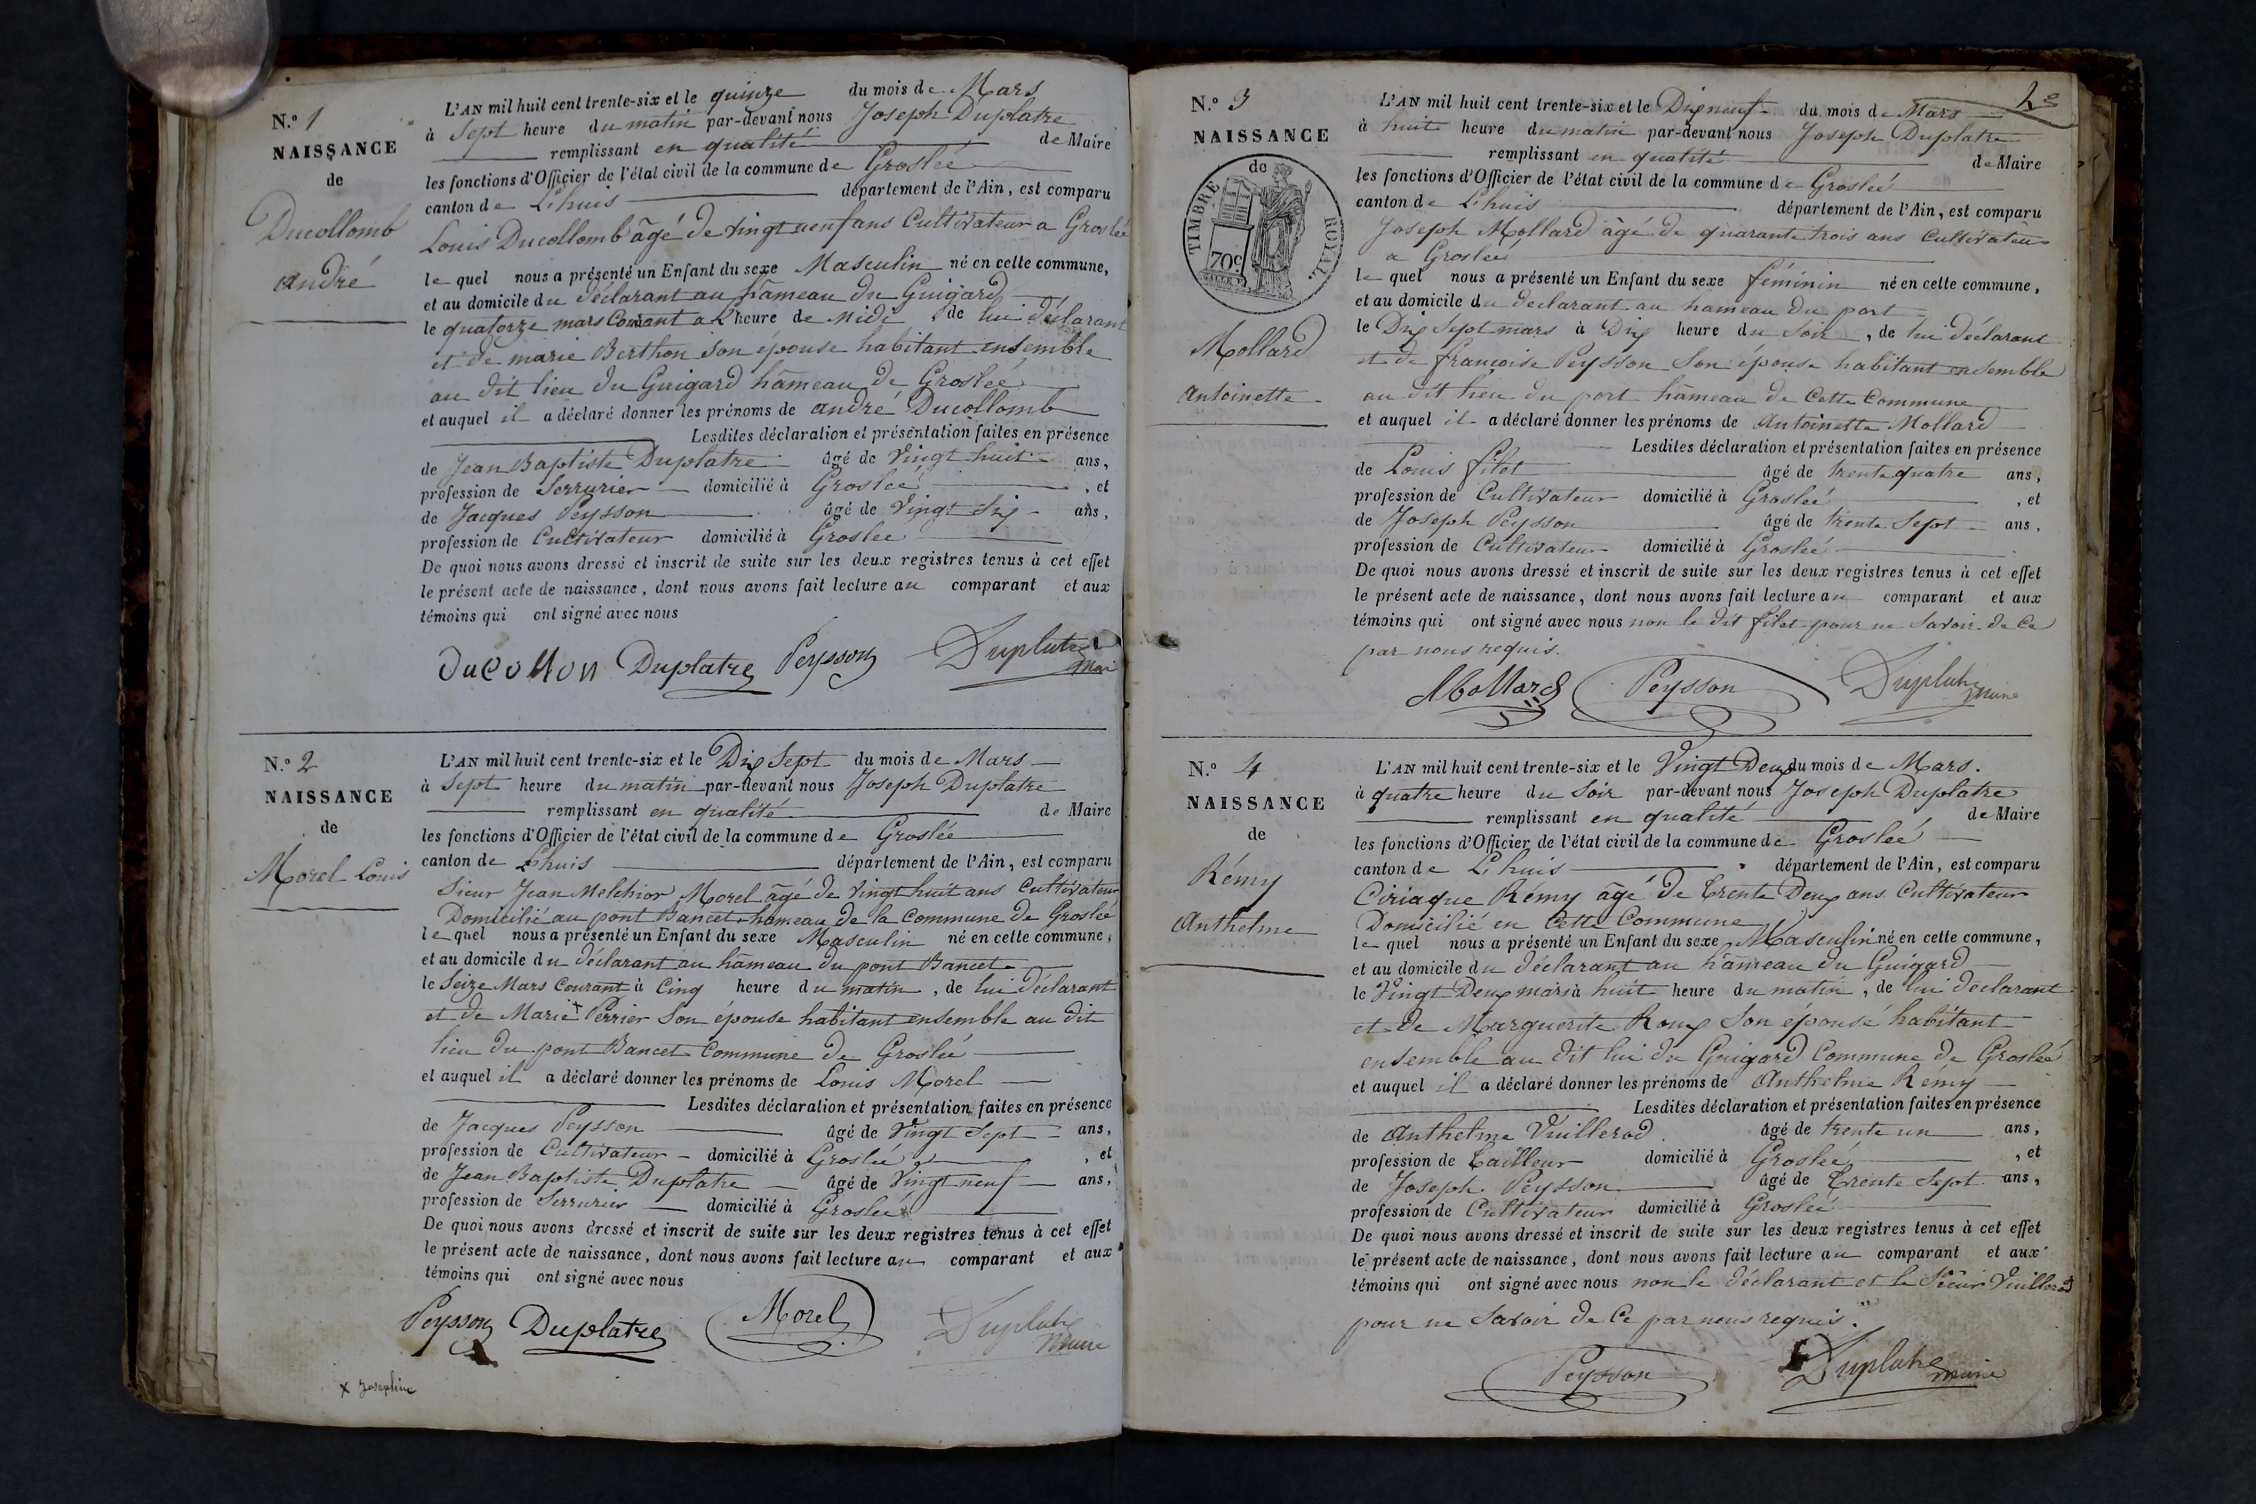 N.º 1
NAISSANCE
de
Ducollomb
andré
L'AN mil huit cent trente-six et le quinze du mois de Mars
à Sept heure du matin par-devant nous Joseph Duplatre
remplissant en qualité de Maire
les fonctions d'Officier de l'état civil de la commune de Groslée
canton de L'huis département de l'Ain, est comparu
Louis Ducollomb âgé de vingt neuf ans Cultivateur a Groslée
le quel nous a présenté un Enfant du sexe Masculin né en cette commune,
et au domicile du déclarant au hâmeau du Guigard
le quatorze mars Courant a L'heure de Midi, de lui déclarant
et de marie Berthon son épouse habitant ensemble
au dit lieu du Guigard hâmeau de Groslée
et auquel il a déclaré donner les prénoms de andré Ducollomb
Lesdites déclaration et présentation faites en présence
de Jean Baptiste Duplatre âgé de Vingt huit ans,
profession de Serrurier domicilié à Groslée, et
de Jacques Peysson âgé de Vingt Six ans,
profession de Cultivateur domicilié à Groslée
De quoi nous avons dressé et inscrit de suite sur les deux registres tenus à cet effet
le présent acte de naissance, dont nous avons fait lecture au comparant et aux
témoins qui ont signé avec nous
ducollon Duplatre Peysson Duplatre
N.º 2
NAISSANCE
de
Morel Louis
L'AN mil huit cent trente-six et le Dix Sept du mois de Mars
à Sept heure du matin par-devant nous Joseph Duplatre
remplissant en qualité de Maire
les fonctions d'Officier de l'état civil de la commune de Groslée
canton de L'huis département de l'Ain, est comparu
Sieur Jean Melchior Morel âgé de vingt huit ans Cultivateur
Domicilié au pont Bancet hameau de la Commune de Groslée
le quel nous a présenté un Enfant du sexe Masculin né en cette commune,
et au domicile du déclarant au hâmeau du pont Bancet
le Seize Mars Courant à Cinq heure du matin, de lui déclarant
et de Marie x Perrier Son épouse habitant ensemble au dit
lieu du pont Bancet Commune de Groslée
et auquel il a déclaré donner les prénoms de Louis Morel
Lesdites déclaration et présentation faites en présence
de Jacques Peysson âgé de Vingt Sept ans,
profession de Cultivateur domicilié à Groslée, et
de Jean Baptiste Duplatre âgé de Vingt neuf ans,
profession de Serrurier domicilié à Groslée
De quoi nous avons dressé et inscrit de suite sur les deux registres tenus à cet effet
le présent acte de naissance, dont nous avons fait lecture au comparant et aux
témoins qui ont signé avec nous
Peysson Duplatre Morel Duplatre
Maire
x Josephine
2e
N.º 3
NAISSANCE
de
TIMBRE ROYAL
70c
Mollard
Antoinette
L'AN mil huit cent trente-six et le Dix neuf du mois de Mars
à huit heure du matin par-devant nous Joseph Duplatre
remplissant en qualité de Maire
les fonctions d'Officier de l'état civil de la commune de Groslée
canton de L'huis département de l'Ain, est comparu
Joseph Mollard âgé de quarante trois ans Cultivateur
a Groslée
le quel nous a présenté un Enfant du sexe féminin né en cette commune,
et au domicile du declarant au hameau du port
le Dix Sept mars à Dix heure du Soir, de lui déclarant
et de françoise Peysson Son épouse habitant ensemble
au dit lieu du port hâmeau de Cette Commune
et auquel il a déclaré donner les prénoms de Antoinette Mollard
Lesdites déclaration et présentation faites en présence
de Louis filet âgé de trente quatre ans,
profession de Cultivateur domicilié à Groslée, et
de Joseph Peysson âgé de trente Sept ans,
profession de Cultivateur domicilié à Groslée
De quoi nous avons dressé et inscrit de suite sur les deux registres tenus à cet effet
le présent acte de naissance, dont nous avons fait lecture au comparant et aux
témoins qui ont signé avec nous non le dit filet pour ne Savoir de Ce
par nous requis.
Mollard Peysson Duplatre
Maire
N.º 4
NAISSANCE
de
Rémy
Anthelme
L'AN mil huit cent trente-six et le Vingt Deux du mois de Mars.
à quatre heure du Soir par-devant nous Joseph Duplatre
remplissant en qualité de Maire
les fonctions d'Officier de l'état civil de la commune de Groslée
canton de L'huis département de l'Ain, est comparu
Ciriaque Rémy âgé de Trente Deux ans Cultivateur
Domicilié en Cette Commune
le quel nous a présenté un Enfant du sexe Masculin né en cette commune,
et au domicile du déclarant au hâmeau du Guigard
le Vingt Deux mars à huit heure du matin, de lui déclarant
et de Marguerite Roux Son épouse habitant
ensemble au dit lui du Guigard Commune de Groslée
et auquel il a déclaré donner les prénoms de Anthelme Rémy
Lesdites déclaration et présentation faites en présence
de Anthelme Vuillerod âgé de trente un ans,
profession de Tailleur domicilié à Groslée, et
de Joseph Peysson âgé de Trente Sept ans,
profession de Cultivateur domicilié à Groslée
De quoi nous avons dressé et inscrit de suite sur les deux registres tenus à cet effet
le présent acte de naissance, dont nous avons fait lecture au comparant et aux
témoins qui ont signé avec nous non le déclarant et le Sieur Vuillerod
pour ne Savoir de Ce par nous requis.
Peysson Duplatre
Maire